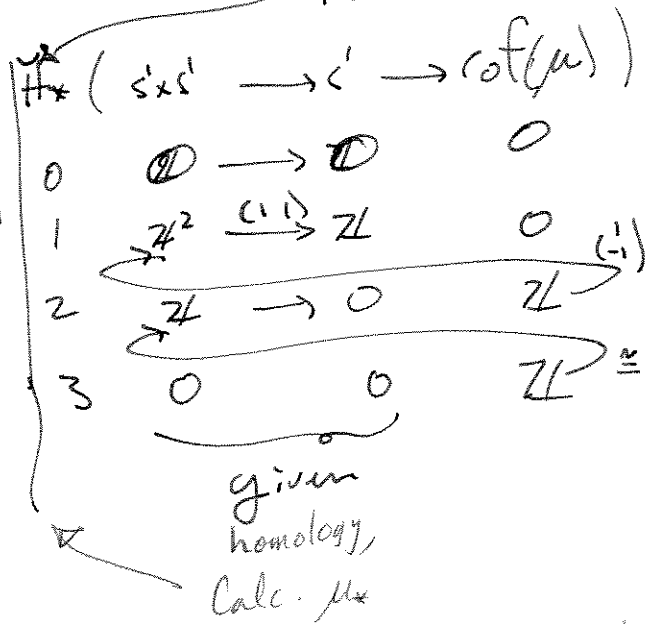 H̃_* ( S¹×S¹ ⟶ S¹ ⟶ cof(μ) )
0 0 ⟶ 0 0
1 ℤ² (1 1)⟶ ℤ 0
(1 -1)
2 ℤ ⟶ 0 ℤ
≅
3 0 0 ℤ
given
homology,
Calc. μ_*